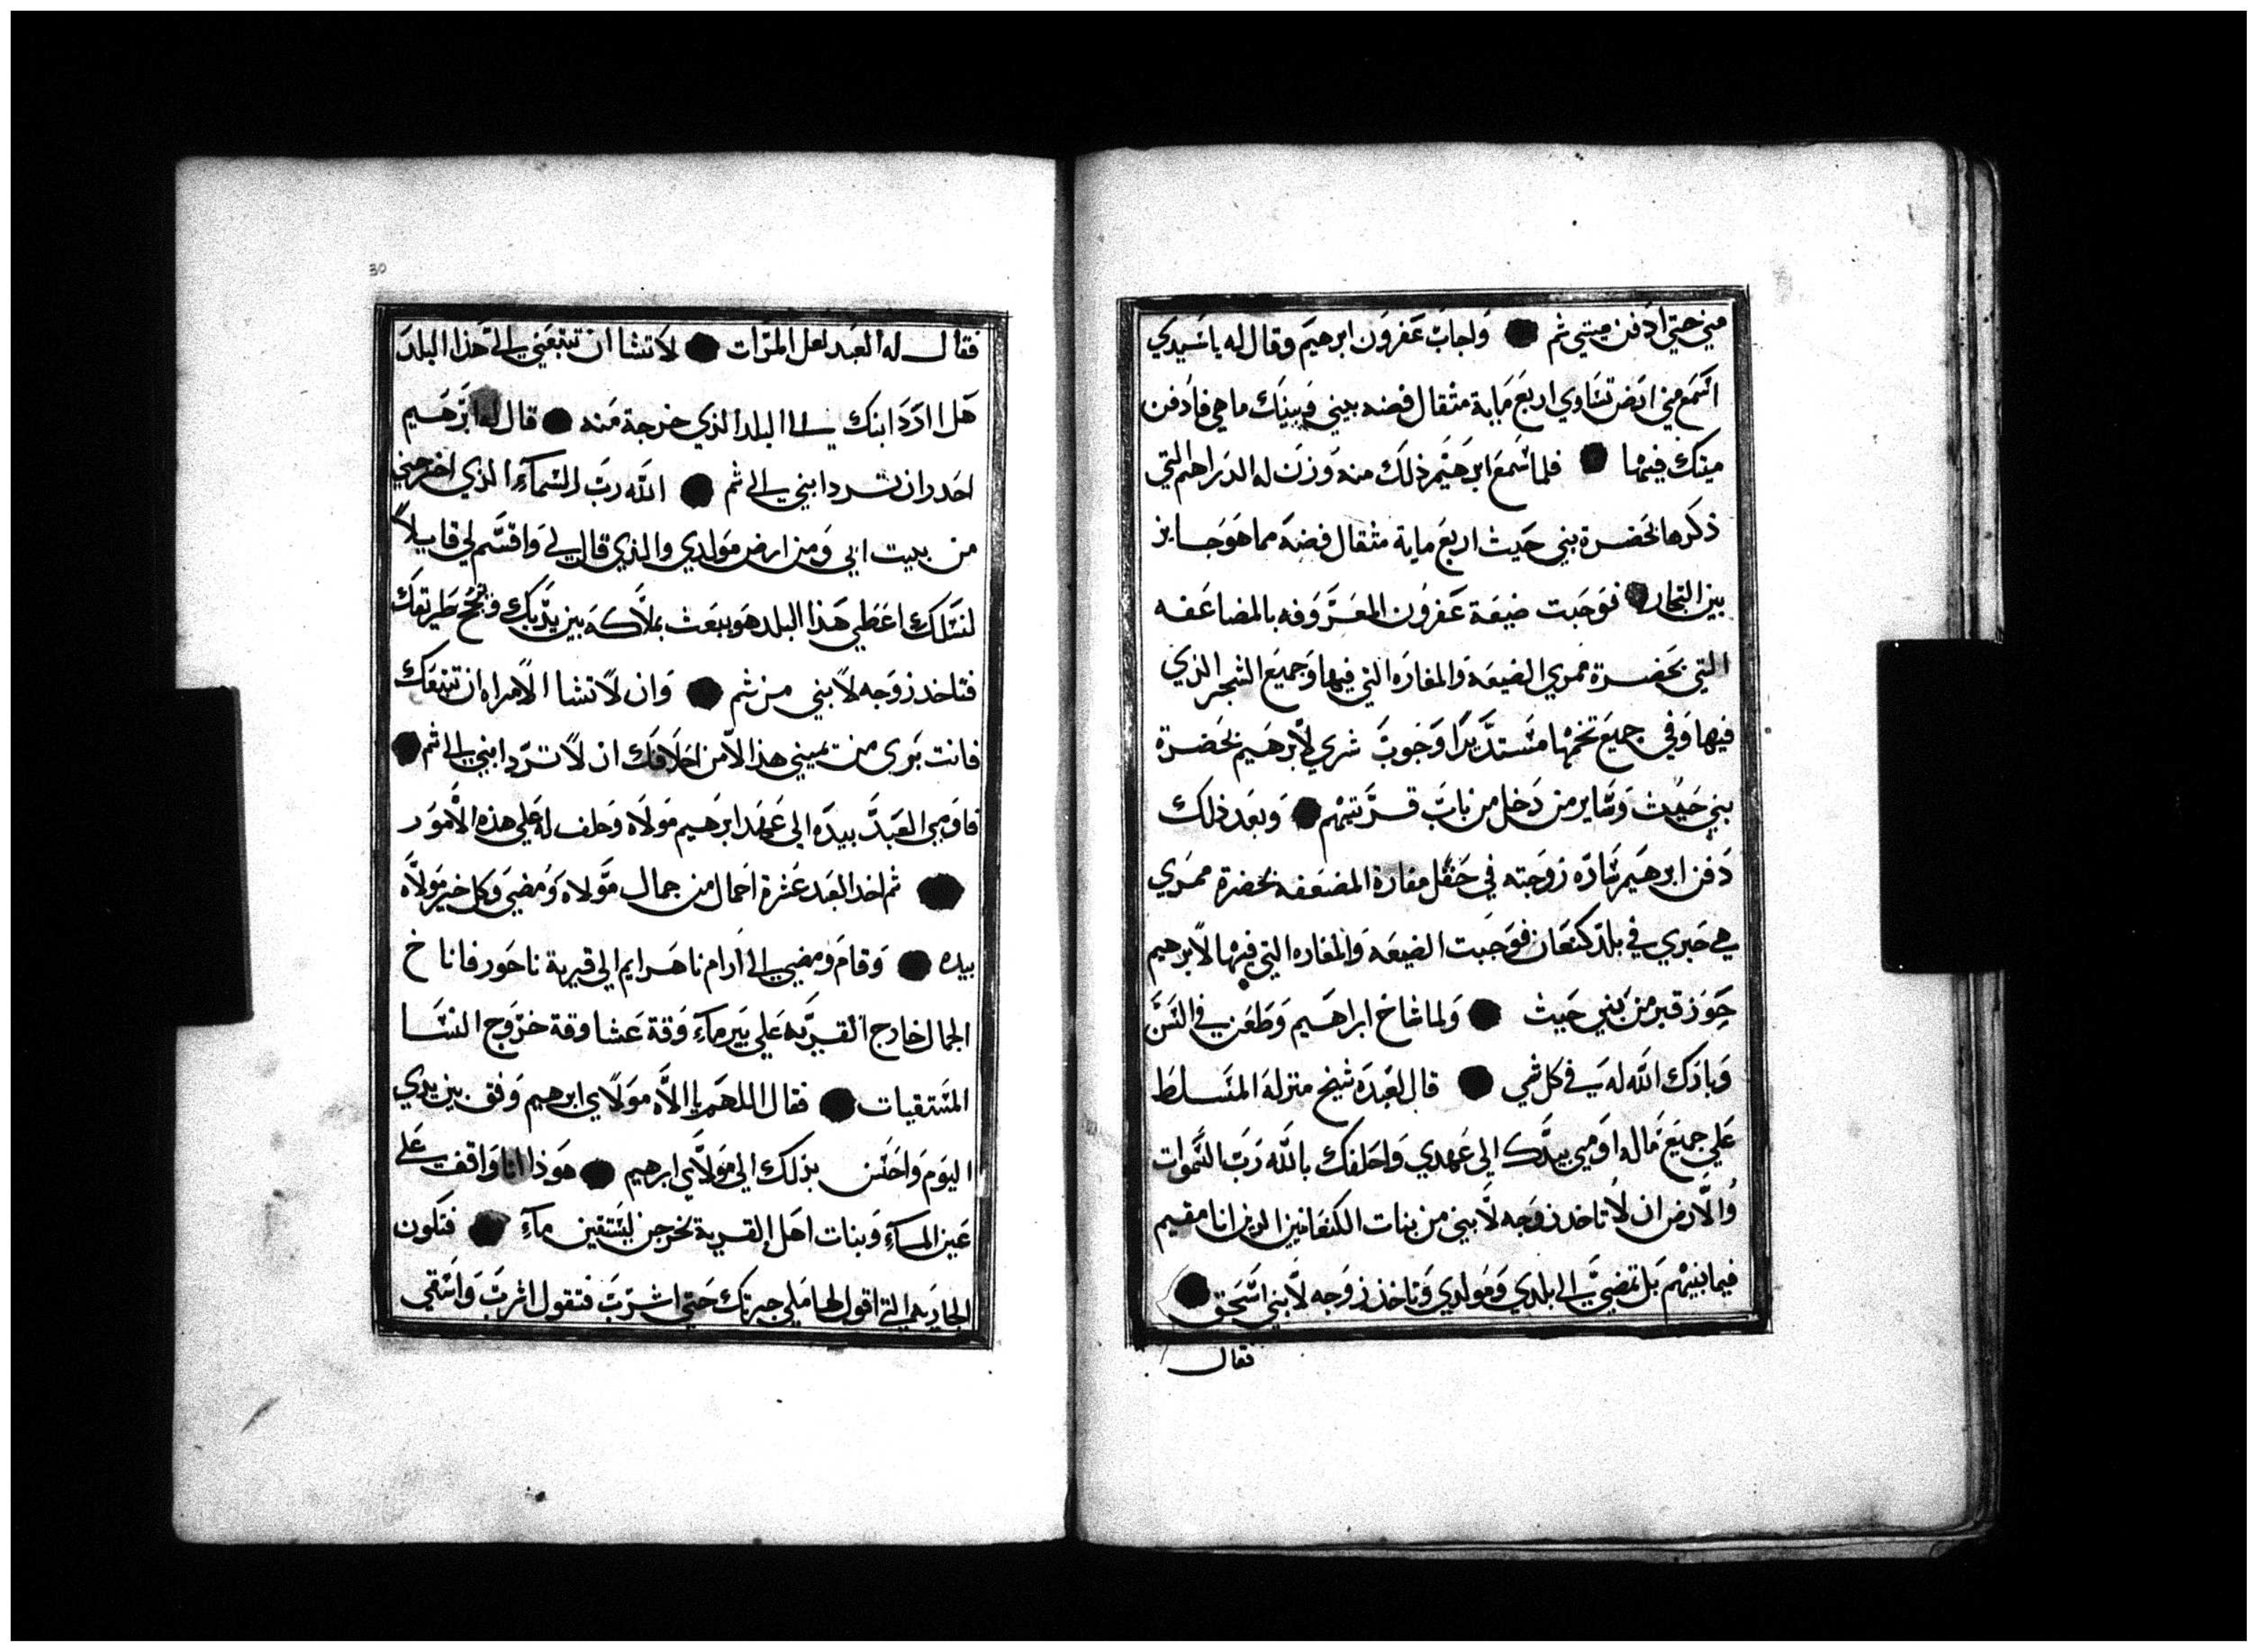 مني حتي ادفن ميتي ثم ● واجاب عفرون ابرهيم وقال له ياسيدي
اسمع مني ارض تساوي اربع ماية مثقال فضه بيني وبينك ما هي فادفن
ميتك فيها ● فلما سمع ابرهيم ذلك منه وزن له الدراهم التي
ذكرها بحضرة بني حيث اربع ماية مثقال فضه مما هو جايز
بين التجار ● فوجبت ضيعة عفرون المعروفه بالمضاعفه
التي بحضرة ممري الضيعه والمغاره التي فيها وجميع الشجر الذي
فيها وفي جميع تخمها مستديرا وجوب شري لأبرهيم بحضرة
بني حيث وساير من دخل من باب قريتهم ● وبعد ذلك
دفن ابرهيم ساره زوجته في حقل مغارة المضعفه بحضرة ممري
هي حبري في بلد كنعان فوجبت الضيعه والمغاره التي فيها لأبرهيم
حوز قبر من بني حيث ● ولما شاخ ابراهيم وطعن في السن
وبارك الله له في كل شي ● قال لعبده شيخ منزله المتسلط
علي جميع ماله اومي بيدك الي عهدي واحلفك بالله رب السموات
والأرض ان لا تاخد زوجه لأبني من بنات الكنعانين الدين انا مقيم
فيما بينهم بل تمضي الي بلدي ومولدي وتاخذ زوجه لأبني اسحق ●
فقال
30
فقال له العبد لعل المرات ● لا تشا ان تتبعني الي هذا البلد
هل اردد ابنك الي البلد الذي خرجة منه ● قال له ابرهيم
احدر ان ترد ابني الي ثم ● الله رب السماء الذي اخرجني
من بيت ابي ومن ارض مولدي والذي قال لي واقسم لي قايلاً
لنسلك اعطي هذا البلد هو يبعث بملاكه بين يديك وينجح طريقك
فتاخد زوجه لأبني من ثم ● وان لا تشا الأمراه ان تتبعك
فانت بري من يميني هذا الأمن احلافك ان لا ترد ابني الي ثم ●
فاومي العبد بيده الي عهد ابرهيم مولاه وحلف له علي هذه الأمور
● ثم اخد العبد عشرة احمال من جمال مولاه ومضي وكل خير مولاه
بيده ● وقام ومضي الي ارام ناهرايم الي قرية ناحور فاناخ
الجمال خارج القريه علي بير ماء وقة عشا وقة خروج النسا
المستقيات ● فقال اللهم يا الاه مولاي ابرهيم وفق بين يدي
اليوم واحسن بذلك الي مولاي ابرهيم ● هوذا انا واقف علي
عين الماء وبنات اهل القرية يخرجن ليستقين ماء ● فتكون
الجاريه التي اقول لها ملي جرتك حتي اشرب فتقول اشرب واسقي